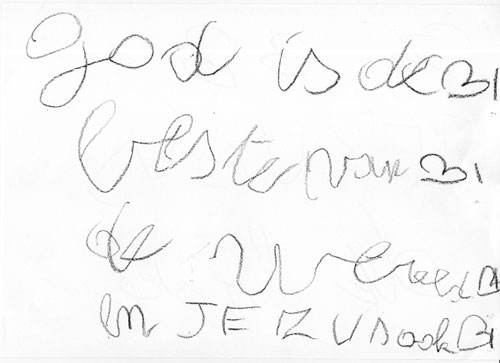 god is de
beste van
de wereld
en JEZUS ook